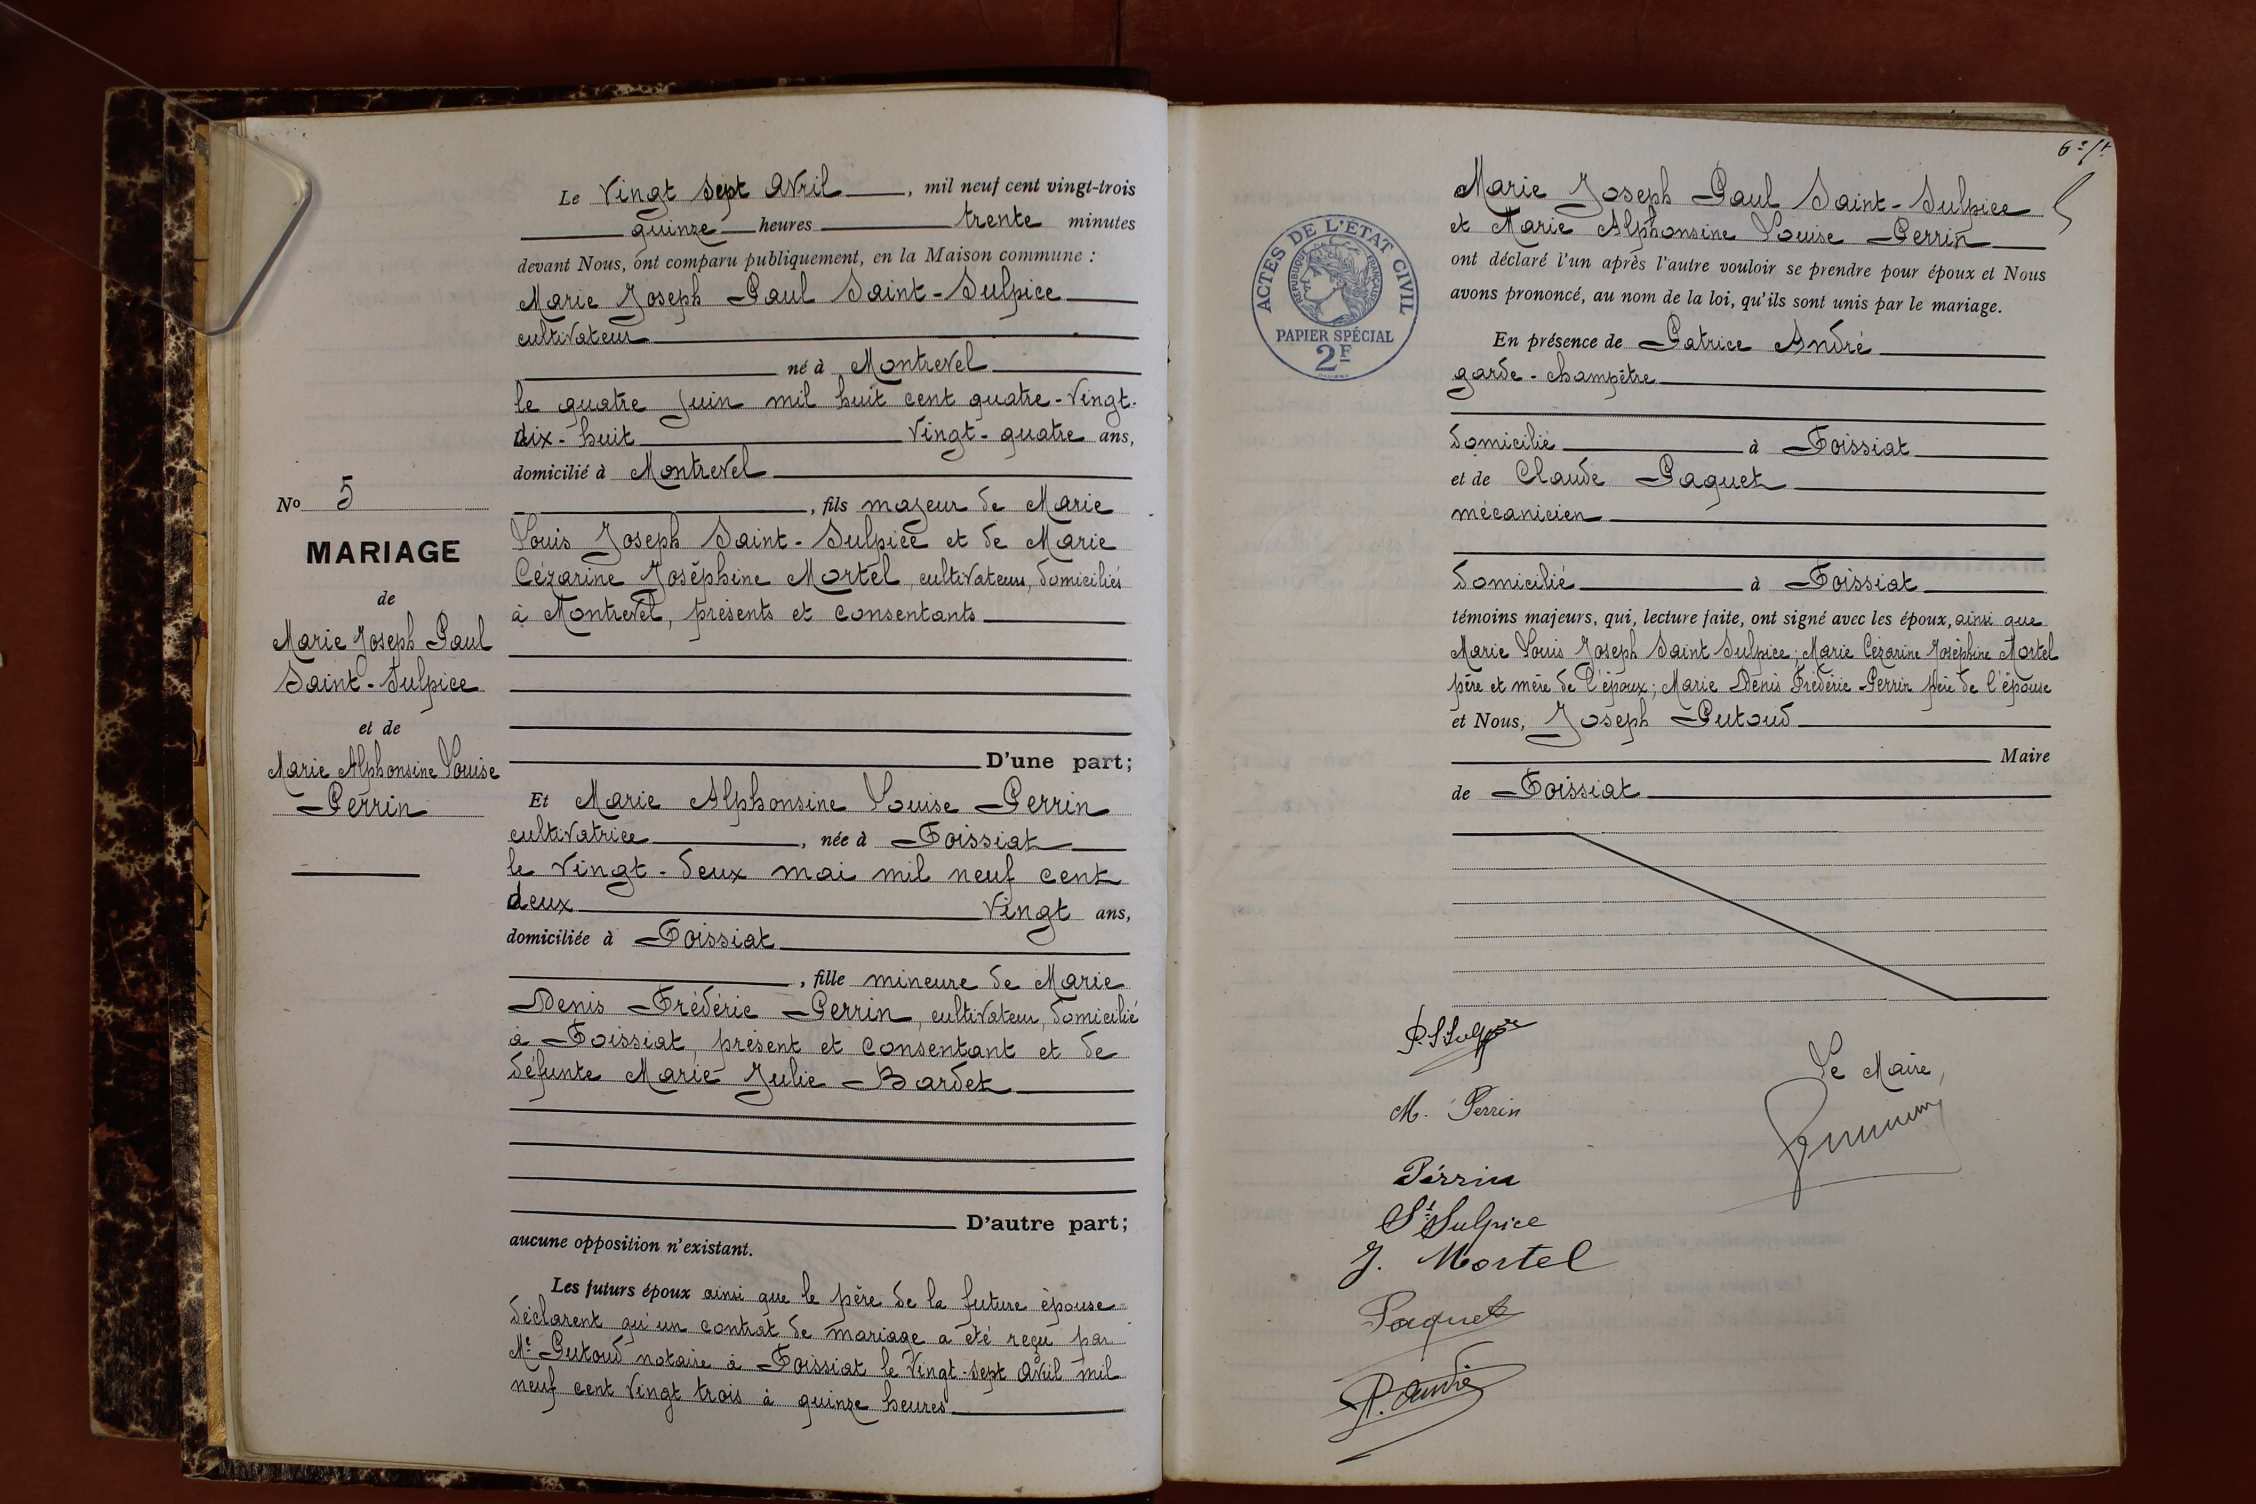 Le vingt sept avril, mil neuf cent vingt-trois
quinze heures trente minutes
devant Nous, ont comparu publiquement, en la Maison commune :
Marie Joseph Paul Saint-Sulpice
cultivateur
né à Montrevel
le quatre juin mil huit cent quatre-vingt-
dix-huit vingt-quatre ans,
domicilié à Montrevel
, fils majeur de Marie
Louis Joseph Saint-Sulpice et de Marie
Cézarine Joséphine Mortel, cultivateurs, domiciliés
à Montrevel, présents et consentants
D'une part;
Et Marie Alphonsine Louise Perrin
cultivatrice, née à Foissiat
le vingt-deux mai mil neuf cent
deux vingt ans,
domiciliée à Foissiat
, fille mineure de Marie
Denis Frédéric Perrin, cultivateur, domicilié
à Foissiat, présent et consentant et de
défunte Marie Julie Bardet
D'autre part;
aucune opposition n'existant.
Les futurs époux ainsi que le père de la future épouse
déclarent qu'un contrat de mariage a été reçu par
Me Putoud notaire à Foissiat le vingt-sept avril mil
neuf cent vingt trois à quinze heures
No 5
MARIAGE
de
Marie Joseph Paul
Saint-Sulpice
et de
Marie Alphonsine Louise
Perrin
Marie Joseph Paul Saint-Sulpice
et Marie Alphonsine Louise Perrin
ont déclaré l'un après l'autre vouloir se prendre pour époux et Nous
avons prononcé, au nom de la loi, qu'ils sont unis par le mariage.
En présence de Patrice André
garde-champêtre
domicilié à Foissiat
et de Claude Paquet
mécanicien
domicilié à Foissiat
témoins majeurs, qui, lecture faite, ont signé avec les époux, ainsi que
Marie Louis Joseph Saint Sulpice; Marie Cézarine Joséphine Mortel
père et mère de l'époux; Marie Denis Frédéric Perrin père de l'épouse
et Nous, Joseph Putoud
Maire
de Foissiat
ACTES DE L'ETAT CIVIL
REPUBLIQUE FRANÇAISE
PAPIER SPÉCIAL
2F
P. St Sulpice
M. Perrin
Perrin
St Sulpice
J. Mortel
Paquet
P. André
Le Maire,